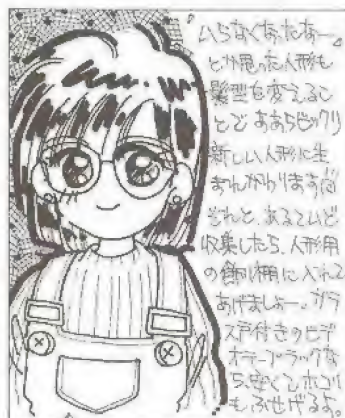 いらなくなったなあー。
とか思った人形も
髪型を変えるこ
とで ああらビックリ
新しい人形に生
まれかわります
それと、あるていど
収集したら、人形用
の飾り棚に入れて
あげましょー。ガラ
ス戸付きのビデ
オテープラックな
ら、安くてホコリ
もふせげるよ。